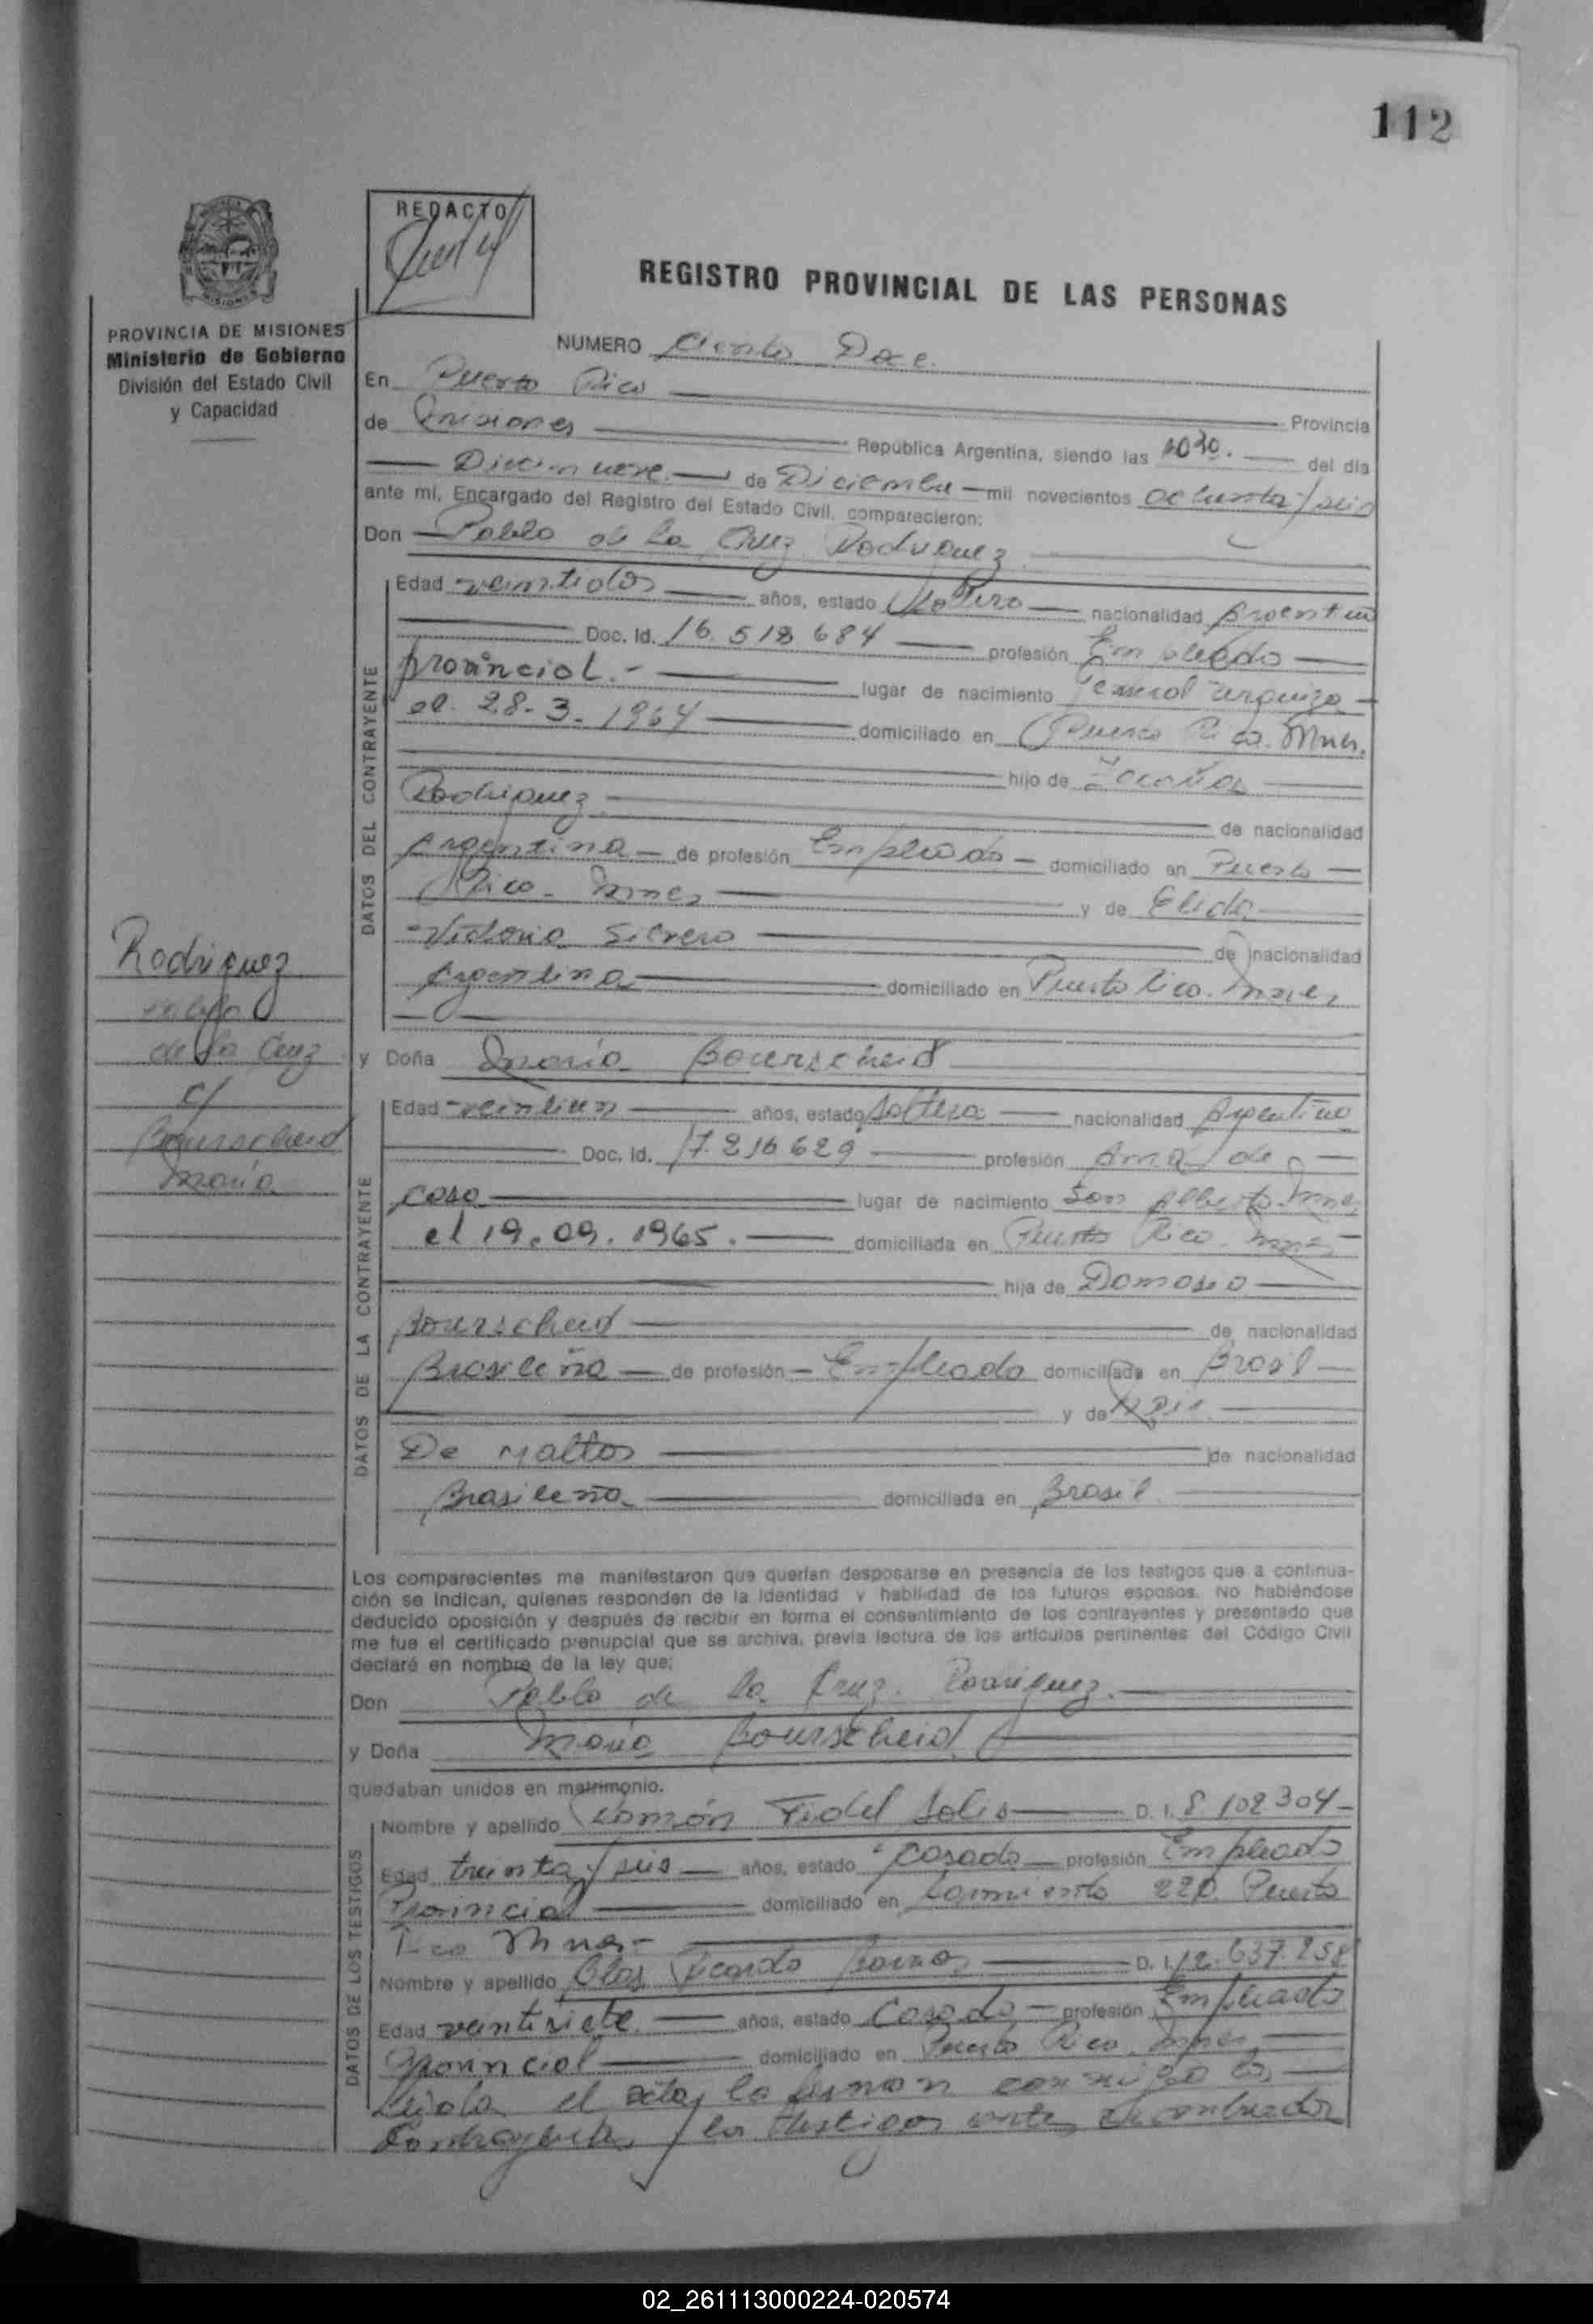 112
REDACTO
REGISTRO PROVINCIAL DE LAS PERSONAS
PROVINCIA DE MISIONES
Ministerio de Gobierno
División del Estado Civil
y Capacidad
NUMERO Ciento Doce.
En Puerto Rico Provincia
de Misiones República Argentina, siendo las 1030. del día
Diecinueve de Diciembre mil novecientos ochenta y seis
ante mí, Encargado del Registro del Estado Civil, comparecieron:
Don Pablo de la Cruz Rodriguez
DATOS DEL CONTRAYENTE
Edad veintidos años, estado Soltero nacionalidad Argentina
Doc. Id. 16.518684 profesión Empleado
provincial.- lugar de nacimiento General Urquiza
el. 28-3-1964 domiciliado en Puerto Rico. Mnes.
hijo de
Rodriguez de nacionalidad
Argentina de profesión Empleado domiciliado en Puerto
Rico - Mnes y de Elida
Victoria Silvero de nacionalidad
Argentina domiciliado en Puerto Rico. Mnes
Rodriguez
Pablo
de la Cruz
c/
Bourscheid
María
y Doña María Bourscheid
DATOS DE LA CONTRAYENTE
Edad veintiun años, estado Soltera nacionalidad Argentina
Doc. Id. 17.216629 profesión Ama de
casa lugar de nacimiento San Alberto Mnes
el 19.09.1965. domiciliada en Puerto Rico. Mnes
hija de Domosio
Bourscheid de nacionalidad
Brasileña de profesión Empleado domiciliada en Brasil
y de
De Mattos de nacionalidad
Brasileña domiciliada en Brasil
Los comparecientes me manifestaron que querían desposarse en presencia de los testigos que a continua-
ción se indican, quienes responden de la identidad y habilidad de los futuros esposos. No habiéndose
deducido oposición y después de recibir en forma el consentimiento de los contrayentes y presentado que
me fue el certificado prenupcial que se archiva, previa lectura de los artículos pertinentes del Código Civil
declaré en nombre de la ley que:
Don Pablo de la Cruz. Rodriguez.
y Doña María Bourscheid
quedaban unidos en matrimonio.
DATOS DE LOS TESTIGOS
Nombre y apellido Ramón Fidel Solis D. I. 8 102304
Edad treinta y seis años, estado Casado profesión Empleado
Provincial domiciliado en Sarmiento 220 Puerto
Rico Mnes-
Nombre y apellido Ricardo D. I. 12.637.258
Edad veintisiete años, estado Casado profesión Empleado
Provincial domiciliado en Puerto Rico. Mnes
Leida el acta, la firman conmigo los
Contrayentes y los testigos antes nombrados
02_261113000224-020574